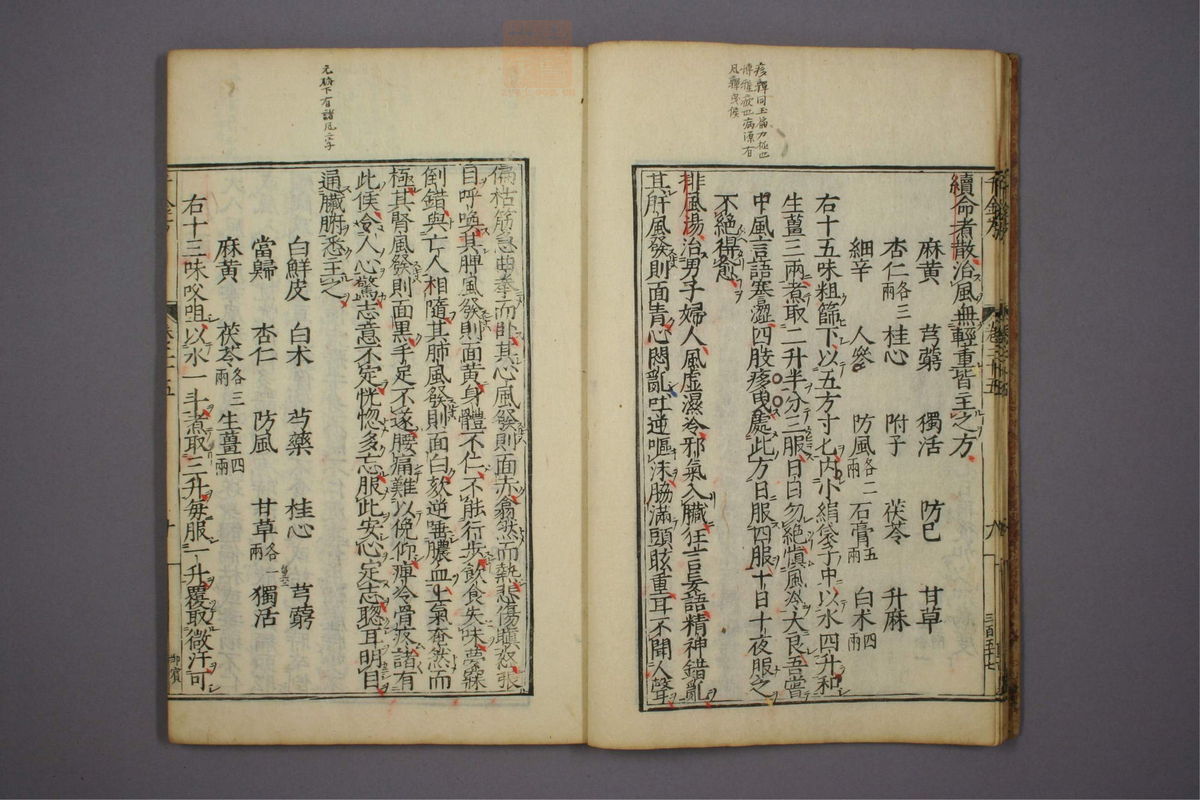 續命煮散治風無輕重皆主之方
麻黃 芎藭 獨活 防己 甘草
杏仁各三兩 桂心 附子 茯苓 升麻
細辛 人參 防風各二兩 石膏五兩 白朮四兩
右十五味粗篩下以五方寸匕内小絹袋子中以水四升和
生薑三兩煮取二升半分三服日日勿絕慎風冷大良吾嘗
中風言語蹇澀四肢疼曳處此方日服四服十日十夜服之
不絕得愈
排風湯治男子婦人風虛濕冷邪氣入臟狂言妄語精神錯亂
其肝風發則面青心悶亂吐逆嘔沫脇滿頭眩重耳不聞人聲
偏枯筋急曲拳而臥其心風發則面赤翕然而熱悲傷嗔怒張
目呼喚其脾風發則面黃身體不仁不能行步飲食失味夢寐
倒錯與亡人相隨其肺風發則面白欬逆唾膿血上氣奄然而
極其腎風發則面黑手足不遂腰痛難以俛仰痺冷骨疼諸有
此候令人心驚志意不定恍惚多忘服此安心定志聰耳明目
通臟腑悉主之
白鮮皮 白朮 芍藥 桂心 芎藭
當歸 杏仁 防風 甘草各一兩 獨活
麻黃 茯苓各三兩 生薑四兩
右十三味㕮咀以水一斗煮取三升每服一升覆取微汗可